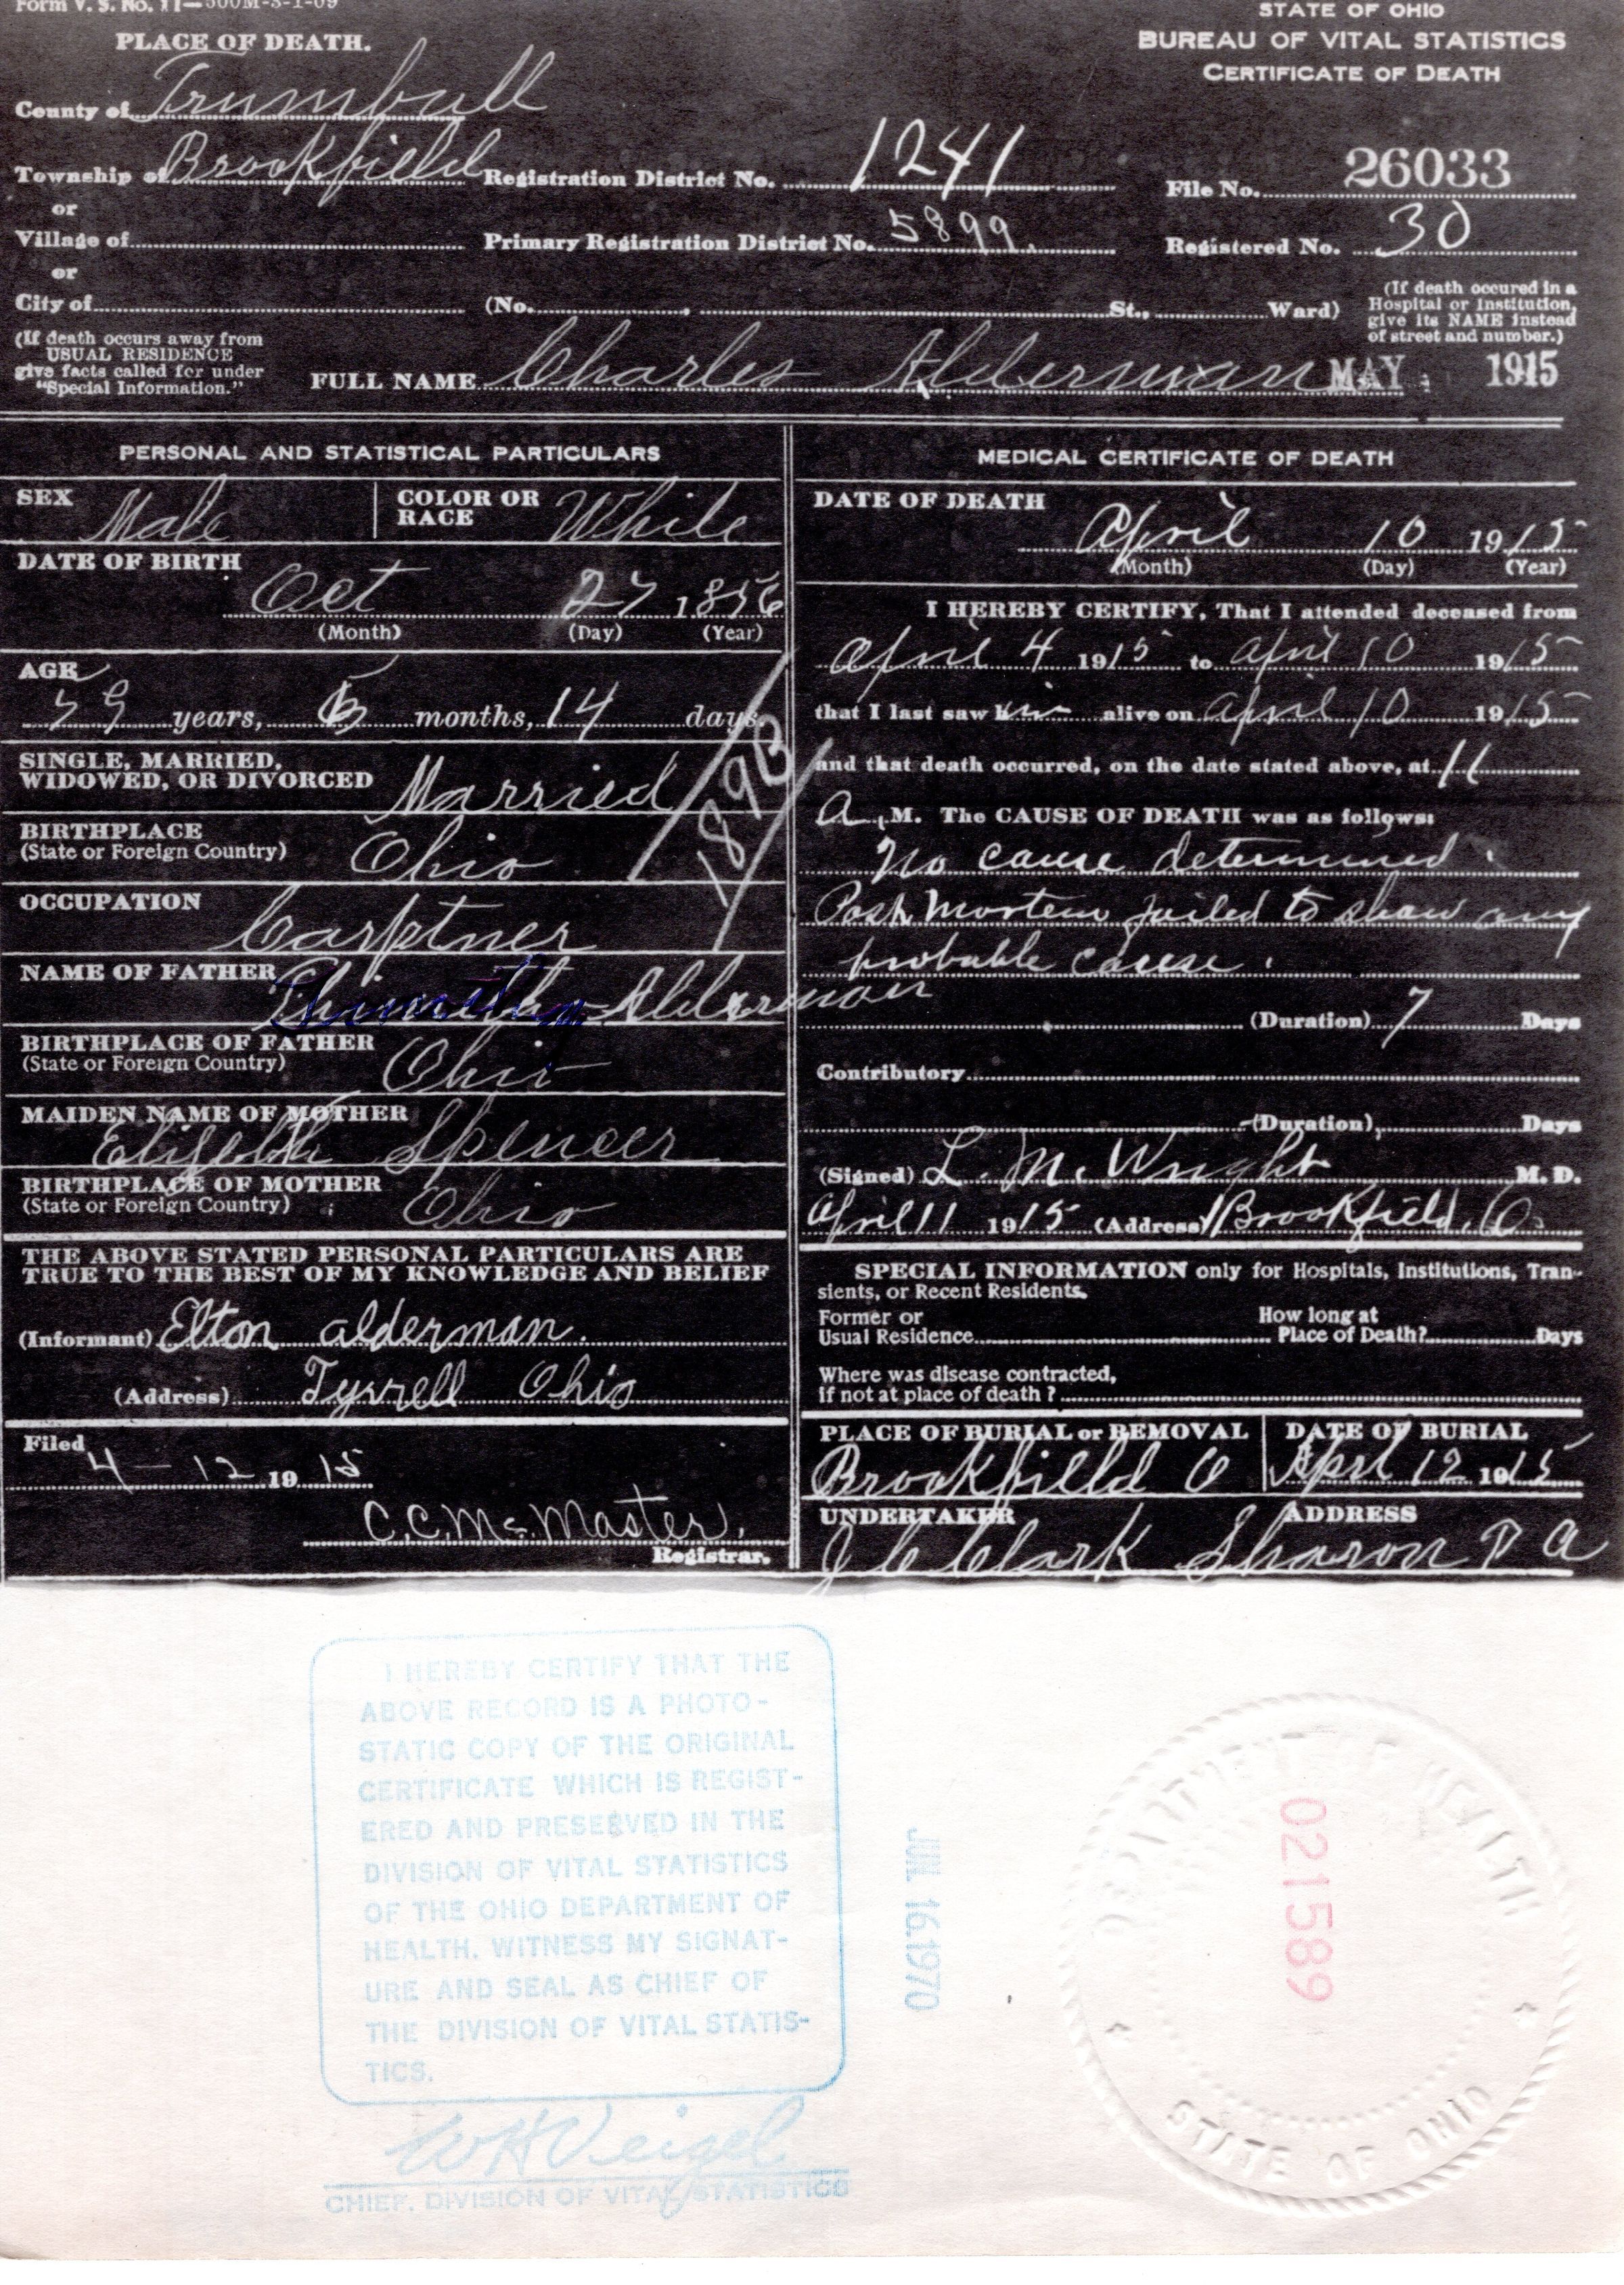 Form V. S. No. 11—500M-3-1-09
STATE OF OHIO
BUREAU OF VITAL STATISTICS
CERTIFICATE OF DEATH
PLACE OF DEATH.
County of Trumbull
Township of Brookfield Registration District No. 1241 File No. 26033
or
Village of Primary Registration District No. 5899. Registered No. 30
or
City of (No. , St., Ward)
(If death occured in a
Hospital or Institution,
give its NAME instead
of street and number.)
(If death occurs away from
USUAL RESIDENCE
give facts called for under
"Special Information."
FULL NAME Charles Alderman MAY 1915
PERSONAL AND STATISTICAL PARTICULARS
SEX Male COLOR OR
RACE White
DATE OF BIRTH
Oct 27 1856
(Month) (Day) (Year)
AGE
59 years, months, 14 days.
SINGLE, MARRIED,
WIDOWED, OR DIVORCED Married
189B
BIRTHPLACE
(State or Foreign Country) Ohio
OCCUPATION
Carptner
NAME OF FATHER
Alderman
BIRTHPLACE OF FATHER
(State or Foreign Country) Ohio
MAIDEN NAME OF MOTHER
Elizebth Spencer
BIRTHPLACE OF MOTHER
(State or Foreign Country) Ohio
THE ABOVE STATED PERSONAL PARTICULARS ARE
TRUE TO THE BEST OF MY KNOWLEDGE AND BELIEF
(Informant) Elton alderman.
(Address) Tyrrell Ohio
Filed
4 - 12 1915
C.C. McMaster.
Registrar.
MEDICAL CERTIFICATE OF DEATH
DATE OF DEATH
April 10 1915
(Month) (Day) (Year)
I HEREBY CERTIFY, That I attended deceased from
April 4 1915 to april 10 1915
that I last saw him alive on april 10 1915
and that death occurred, on the date stated above, at 11
a. M. The CAUSE OF DEATH was as follows:
No cause determined.
Post Mortem failed to show any
probable cause.
(Duration) 7 Days
Contributory
(Duration) Days
(Signed) L. M. Wright M. D.
April 11 1915 (Address) Brookfield, O.
SPECIAL INFORMATION only for Hospitals, Institutions, Tran-
sients, or Recent Residents.
Former or How long at
Usual Residence Place of Death? Days
Where was disease contracted,
if not at place of death ?
PLACE OF BURIAL or REMOVAL DATE OF BURIAL
Brookfield O April 12 1915
UNDERTAKER ADDRESS
J C Clark Sharon PA
I HEREBY CERTIFY THAT THE
ABOVE RECORD IS A PHOTO-
STATIC COPY OF THE ORIGINAL
CERTIFICATE WHICH IS REGIST-
ERED AND PRESERVED IN THE
DIVISION OF VITAL STATISTICS
OF THE OHIO DEPARTMENT OF
HEALTH. WITNESS MY SIGNAT-
URE AND SEAL AS CHIEF OF
THE DIVISION OF VITAL STATIS-
TICS.
WHVeigel
CHIEF, DIVISION OF VITAL STATISTICS
JUN 16 1970
DEPARTMENT OF HEALTH
021589
STATE OF OHIO